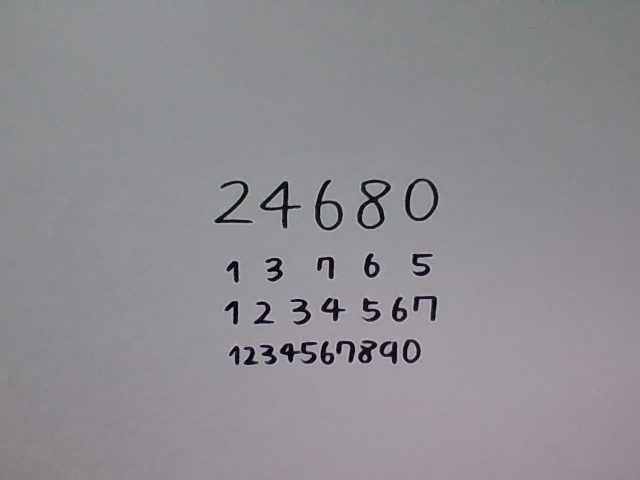 24680
1 3 7 6 5
1 2 3 4 5 6 7
1234567890